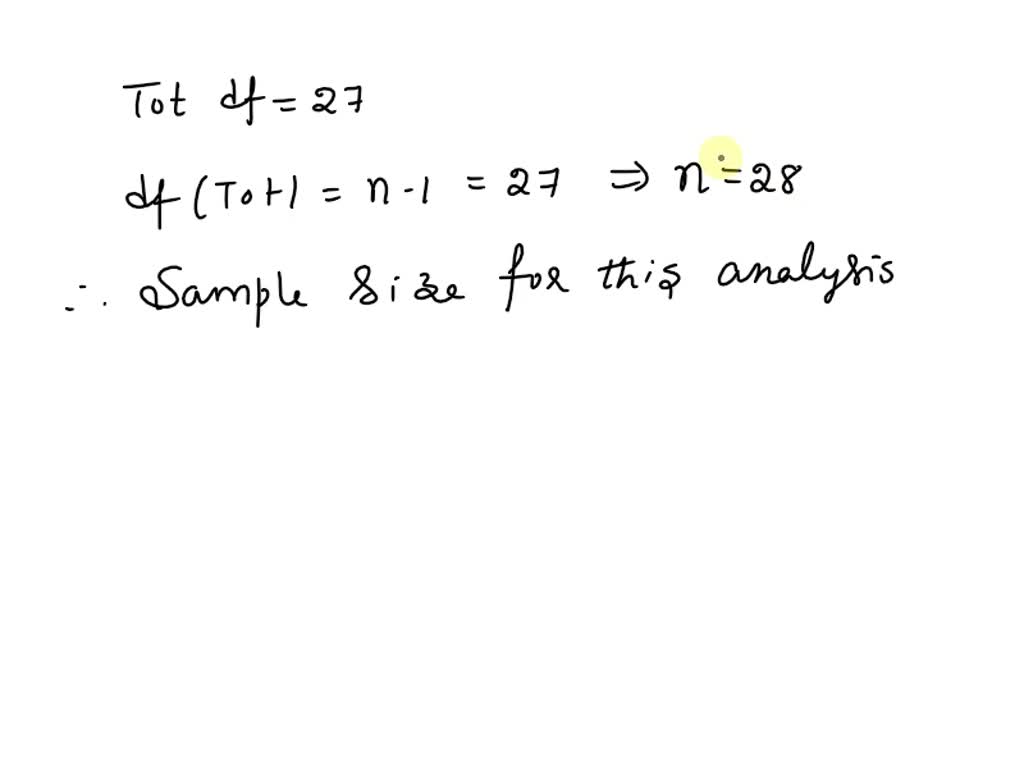 Tot df = 27
df (Tot) = n - 1 = 27 ⇒ n = 28
∴ Sample Size for this analysis